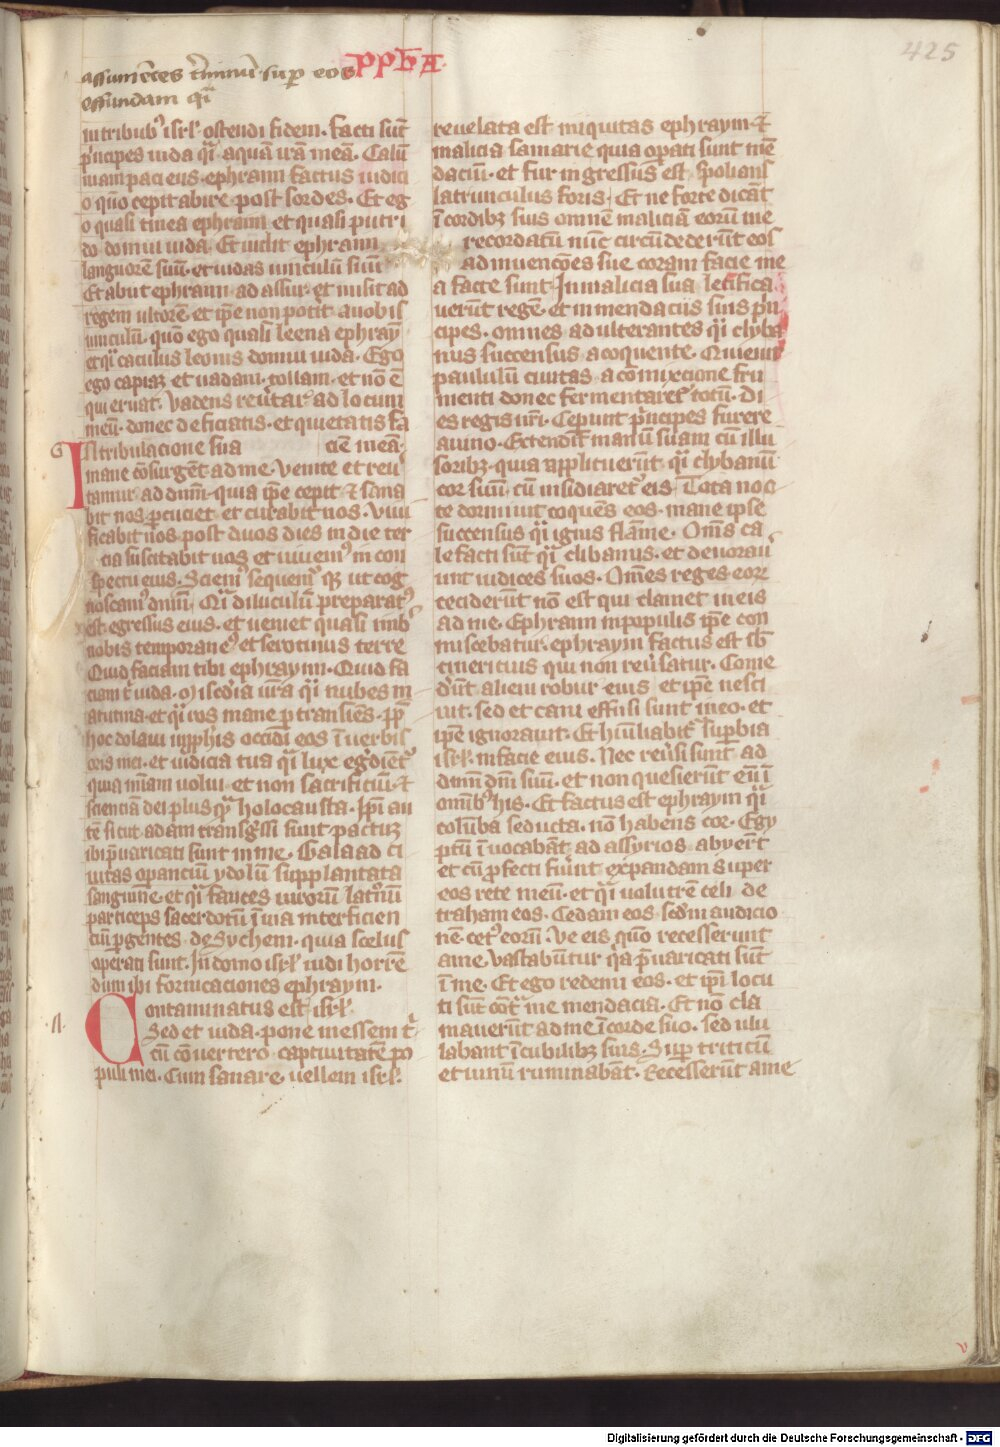 425
assumētes t̄minū sup eos ppħA
effundam qͥ
in tribubꝰ isrl. ostendi fidem. facti sūt
pͥncipes iuda qͥ aquā irā meā. Calū
niam paciens. ephraim factus iudici
o quo cepit abire post sordes. Et eg
o quasi tinea ephraim et quasi putri
do domui iuda. Et uidit ephraim
languorē suū. et iudas uinculū suū
Et abiit ephraim ad assur. et misit ad
regem ultorē. et ip̄e non potit. a uobis
uinculū. quō ego quasi leena ephraȳ
et qͥ catulus leonis domui iuda. Ego
ego capiaꝫ et uadam. tollam. et nō ē
qui eruat. Vadens reūtar ad locum
meū. donec deficiatis. et quietatis fa
G In tribulacione sua ciē meā.
mane cōsurgēt ad me. Venite et reū
tamur ad dnm̄. quia ip̄e cepit et sana
bit nos pcuciet. et curabit nos. Viui
ficabit nos post duos dies in die ter
cia suscitabit nos et uiuemꝰ in con
spectu eius. Sciemꝰ sequemꝰ qꝫ ut cog
noscamꝰ dnm̄. Qͥ diluculū preparatꝰ
est egressus eius. et ueniet quasi imbꝰ
nobis temporaneꝰ et serotinus terre
Quid faciam tibi ephraym. Quid fa
ciam tͥ iuda. Miscdīa urā qͥ nubes m
atutina. et qͥ ros mane ptransiēs. ppͣ
hoc dolaui in pphīs occidi eos ī uerbis
oris mei. et iudicia tua qͥ lux egdientͬ
quia mīam uolui. et non sacrificiū. et
scienciā dei plus qͣ holocausta. Ipī au
tē sicut adam transgssi sunt pactuꝫ
ibi pͥuaricati sunt in me. Galaad ci
uitas operanciū ydolū supplantata
sanguine. et qͥ fauces uirorū latnū
particeps sacerdotū ī uia interficien
ciū pgentes de Sychem. quia scelus
operati sunt. In domo isrl uidi horrē
dum ibi fornicaciones ephraym.
Contaminatus est isrl.
Sed et iuda. pone messem tͥ.
cū cōuertero captiuitatē po
puli mei. Cum sanare uellem isrl.
reuelata est iniquitas ephraym. et
malicia samarie quia opati sunt mē
daciū. et fur ingressus est. spolians
latrunculus foris. Et ne forte dicāt
ī cordibꝫ suis omnē maliciā eorū me
recordatū nūc circūdederūt eos
adinuencōes sue coram facie me
a facte sunt. In malicia sua letifica
uerūt regē. et in mendaciis suis pͥn
cipes. omnes adulterantes qͥ cliba
nus succensus a coquente. Quieuit
paululū ciuitas a cōmixcione fru
menti donec fermentaretͬ totū. Di
es regis nrī. Ceperunt pͥncipes furere
a uino. Extendit manū suam cū illu
soribꝫ. quia applicuerūt qͥ clybanū
cor suū cū insidiaretͬ eis. Tota noc
te dormiuit coquēs eos. mane ipse
succensus qͥ ignis flāme. Omēs ca
le facti sūt qͥ clibanus. et deuoraū
unt iudices suos. Omēs reges eorꝫ
ceciderūt nō est qui clamet in eis
ad me. Ephraim in populis ip̄e con
miscebatur. ephraym factus est sb̄
cinericius qui non reūsatur. Come
dūt alieni robur eius. et ip̄e nesci
uit. sed et cani effusi sunt in eo. et
ip̄e ignorauit. Et hūiliabitͬ supbia
isrl. in facie eius. Nec reūsi sunt ad
dnm̄ dm̄ suū. et non quesierūt eū ī
omībꝰ his. Et factus est ephraym qͥ
colūba seducta. nō habens cor. Egy
ptū īuocabāt. ad assyrios abyerūt
et cū profecti fuīnt expandam super
eos rete meū. et qͥ uolucrē celi de
traham eos. Cedam eos scdm̄ audicio
nē cetꝰ eorū. Ve eis quō recesserunt
a me. Vastabūntur qͣ pͥuaricati sūt
ī me. Et ego redemi eos. et ipī locu
ti sūt cōtͣ me mendacia. Et nō cla
mauerūt ad me ī corde suo. sed ulu
labant ī cubilibꝫ suis. Super triticū
et uinū ruminabāt. Recesserūt a me
Digitalisierung gefördert durch die Deutsche Forschungsgemeinschaft - DFG